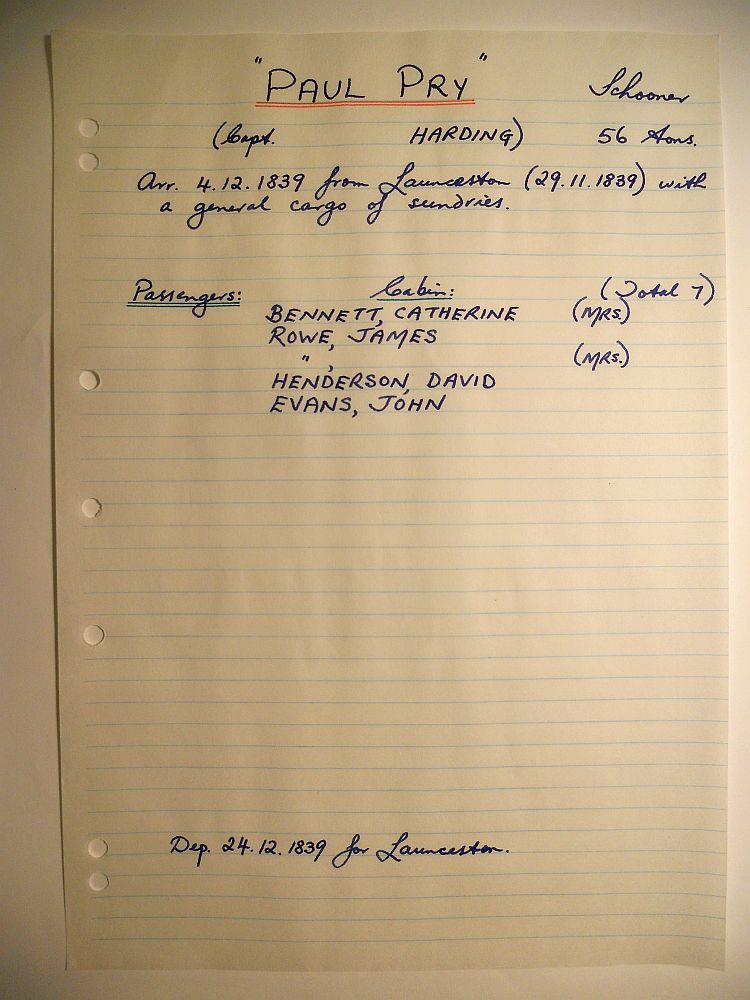 "PAUL PRY" Schooner
(Capt. HARDING) 56 tons.
Arr. 4.12.1839 from Launceston (29.11.1839) with
a general cargo of sundries.
Passengers: Cabin: (Total 7)
BENNETT, CATHERINE (MRS.)
ROWE, JAMES
" , (MRS.)
HENDERSON, DAVID
EVANS, JOHN
Dep. 24.12.1839 for Launceston.